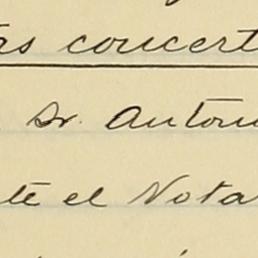 as concert
Sr. Anton
te el Nota